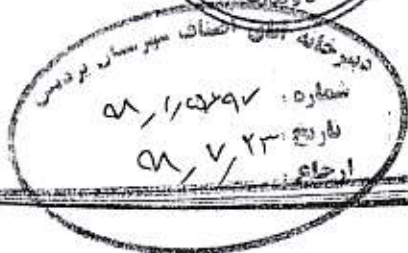 دبیرخانه اتاق اصناف شهرستان پردیس
شماره: ۹۸/۱/۵۶۹۷
تاریخ: ۹۸/۷/۲۳
ارجاع: